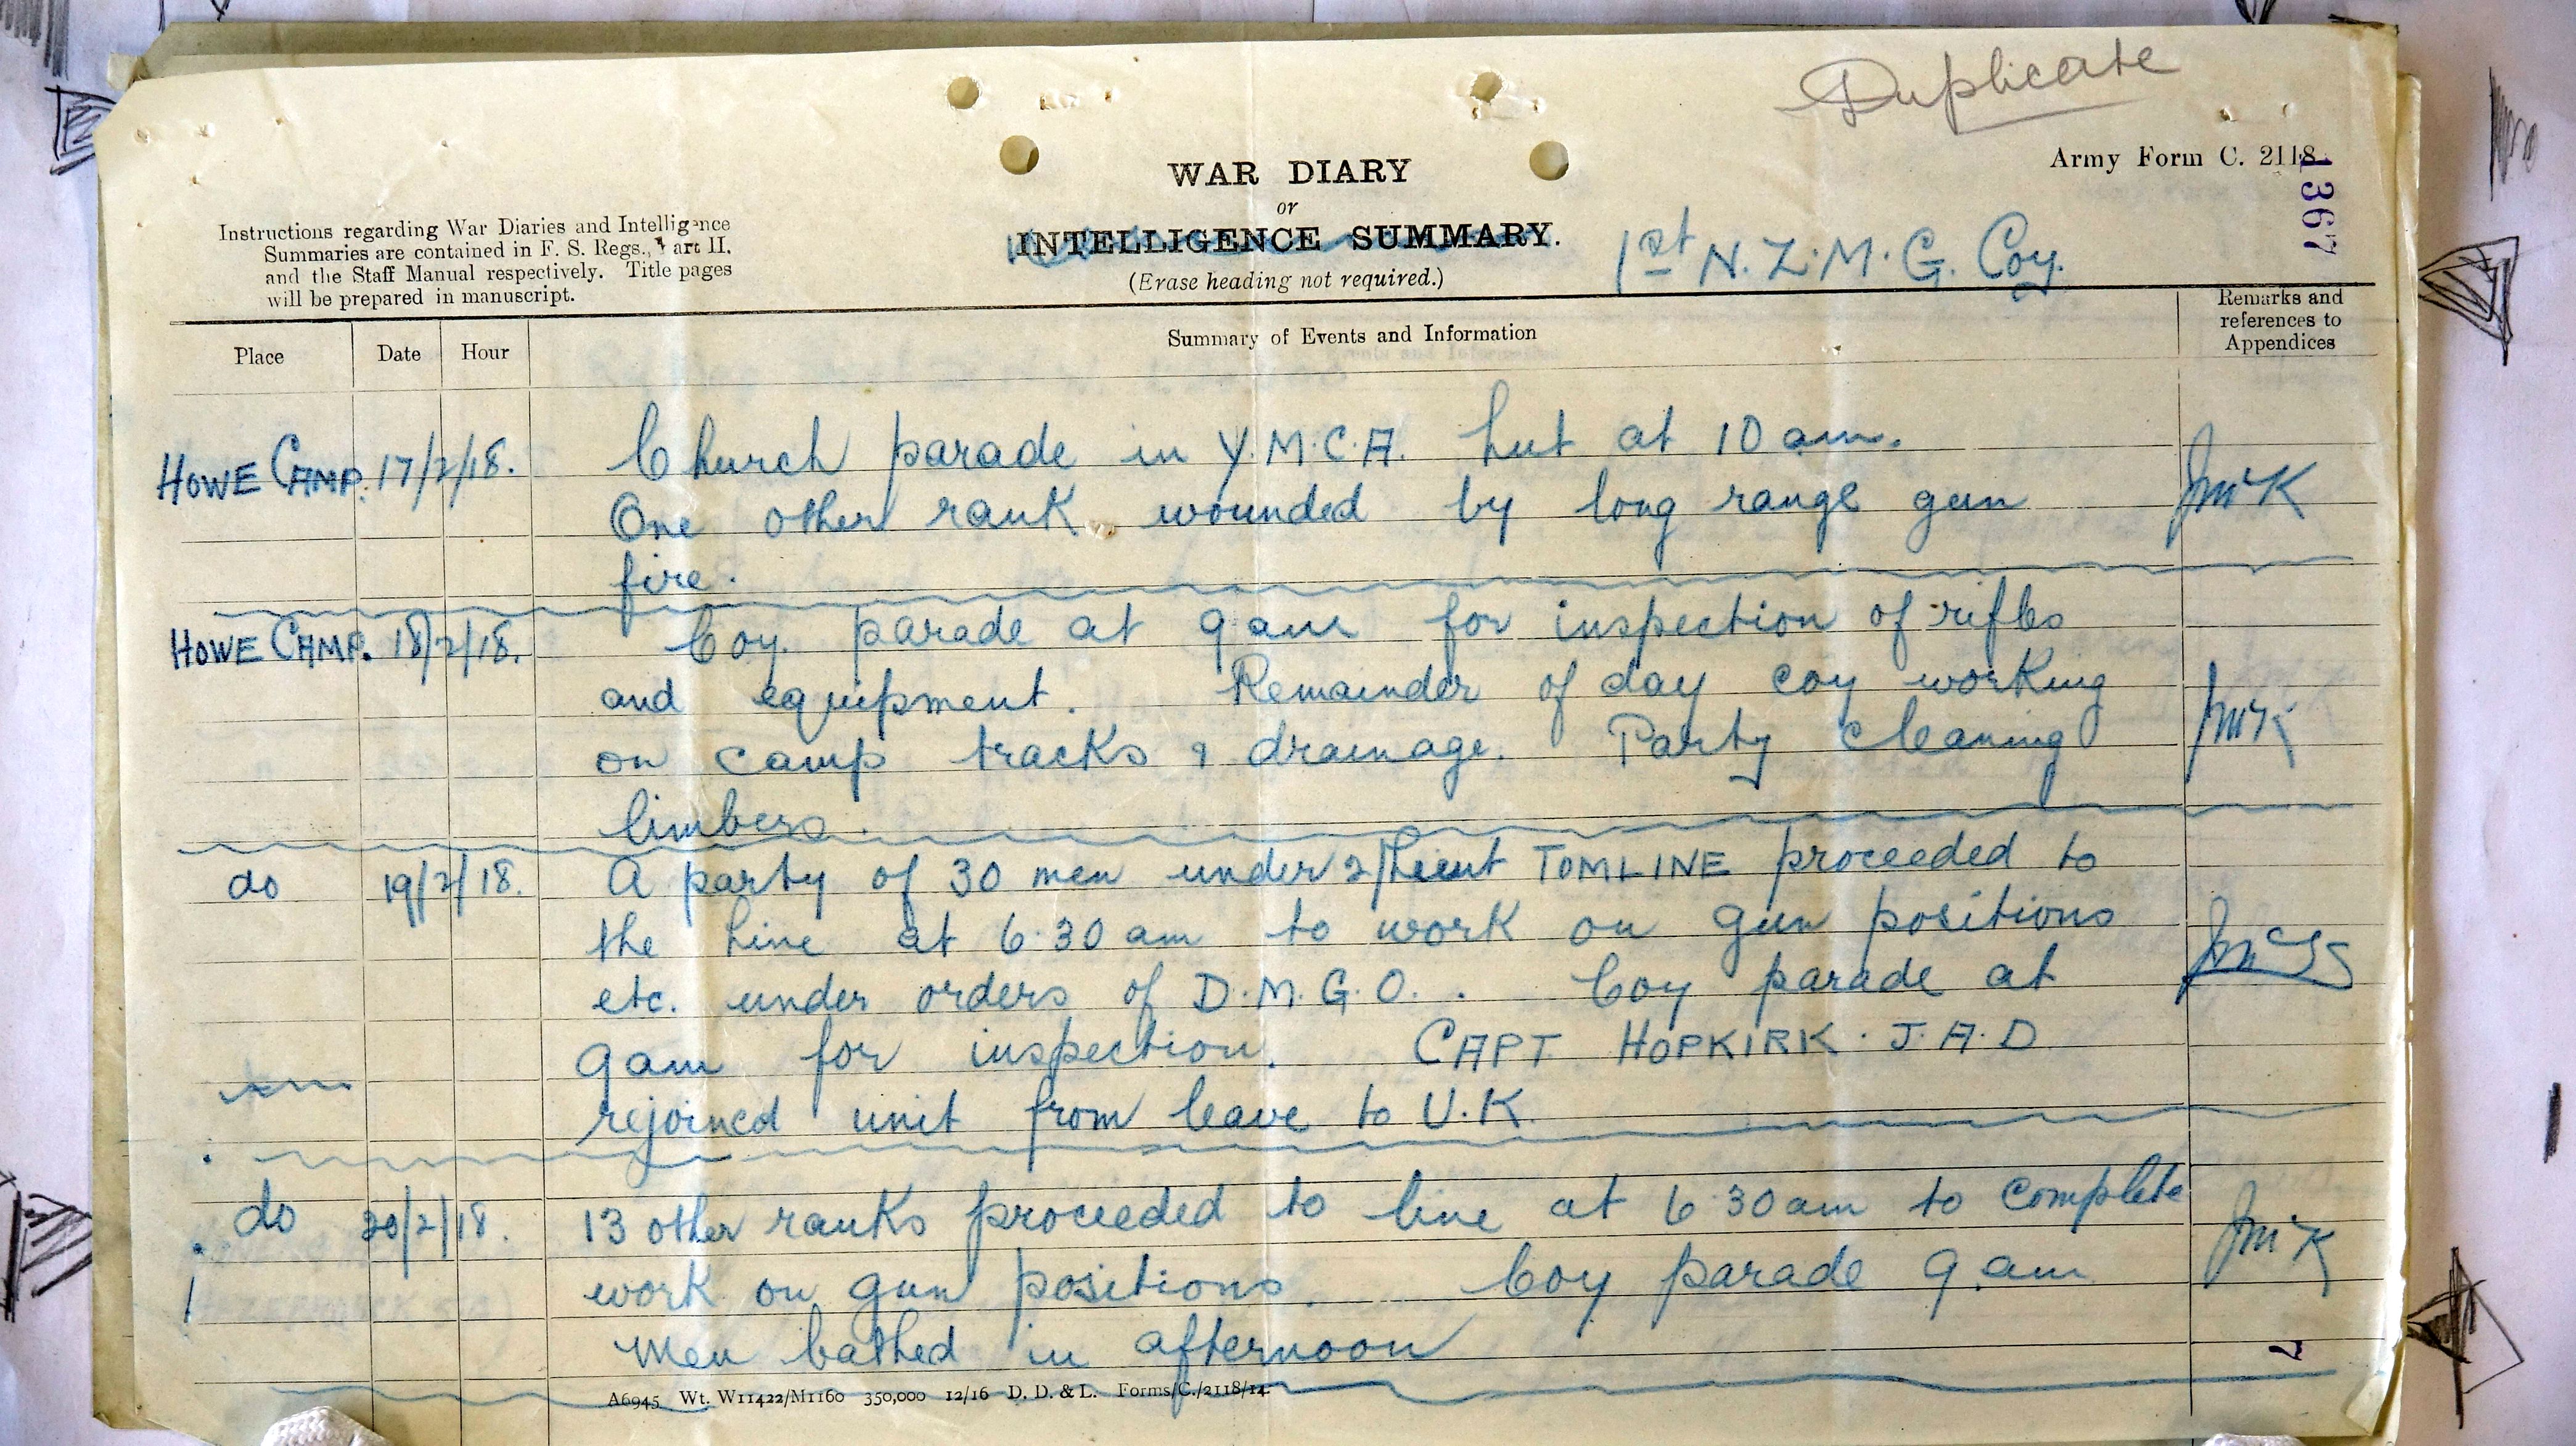 Duplicate
Army Form C. 2118
1367
WAR DIARY
or
INTELLIGENCE SUMMARY.
(Erase heading not required.)
1st N.Z.M.G. Coy.
Instructions regarding War Diaries and Intelligence
Summaries are contained in F. S. Regs., Part II.
and the Staff Manual respectively. Title pages
will be prepared in manuscript.
Place Date Hour Summary of Events and Information Remarks and
references to
Appendices
HOWE CAMP. 17/2/18. Church parade in Y.M.C.A. hut at 10 am.
One other rank wounded by long range gun JMcK
fire.
HOWE CAMP. 18/2/18. Coy. parade at 9 am for inspection of rifles
and equipment. Remainder of day coy working JMcK
on camp tracks & drainage. Party cleaning
limbers.
do 19/2/18. A party of 30 men under 2/Lieut TOMLINE proceeded to
the Line at 6.30 am to work on gun positions JMcK
etc. under orders of D.M.G.O.. Coy parade at
9am for inspection. CAPT HOPKIRK. J.A.D
rejoined unit from leave to U.K.
do 20/2/18. 13 other ranks proceeded to line at 6.30am to complete
work on gun positions. Coy parade 9.am JMcK
Men bathed in afternoon
7
A6945 Wt. W11422/M1160 350,000 12/16 D. D. & L. Forms/C./2118/14.